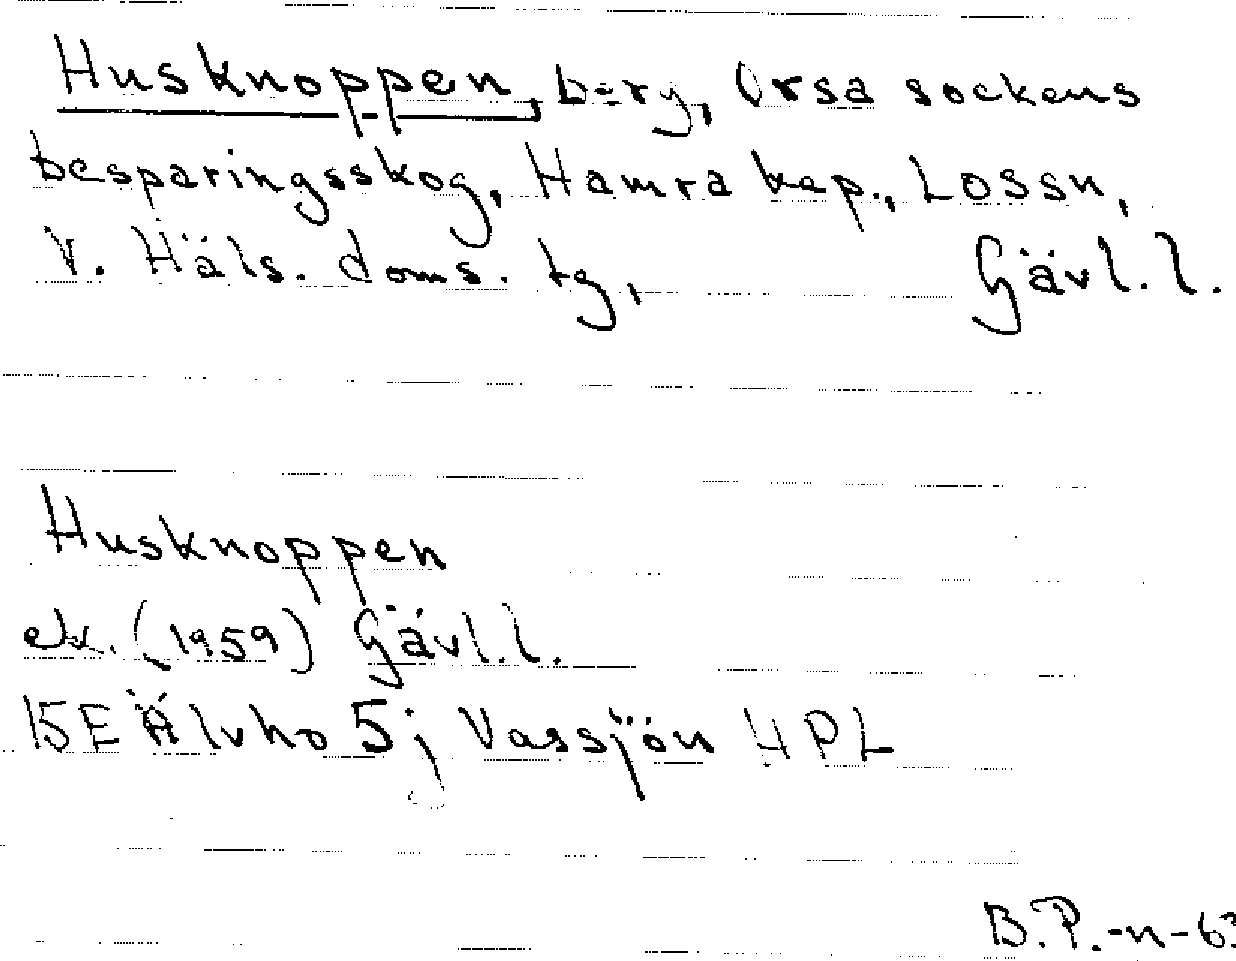 Husknoppen, berg, Orsa sockens
besparingsskog, Hamra kap., Lossn,
V. Häls. doms. tg, Gävl. l.
Husknoppen
ek. (1959) Gävl. l.
15E Älvho 5j Vassjön HPL
B.P.-n-63